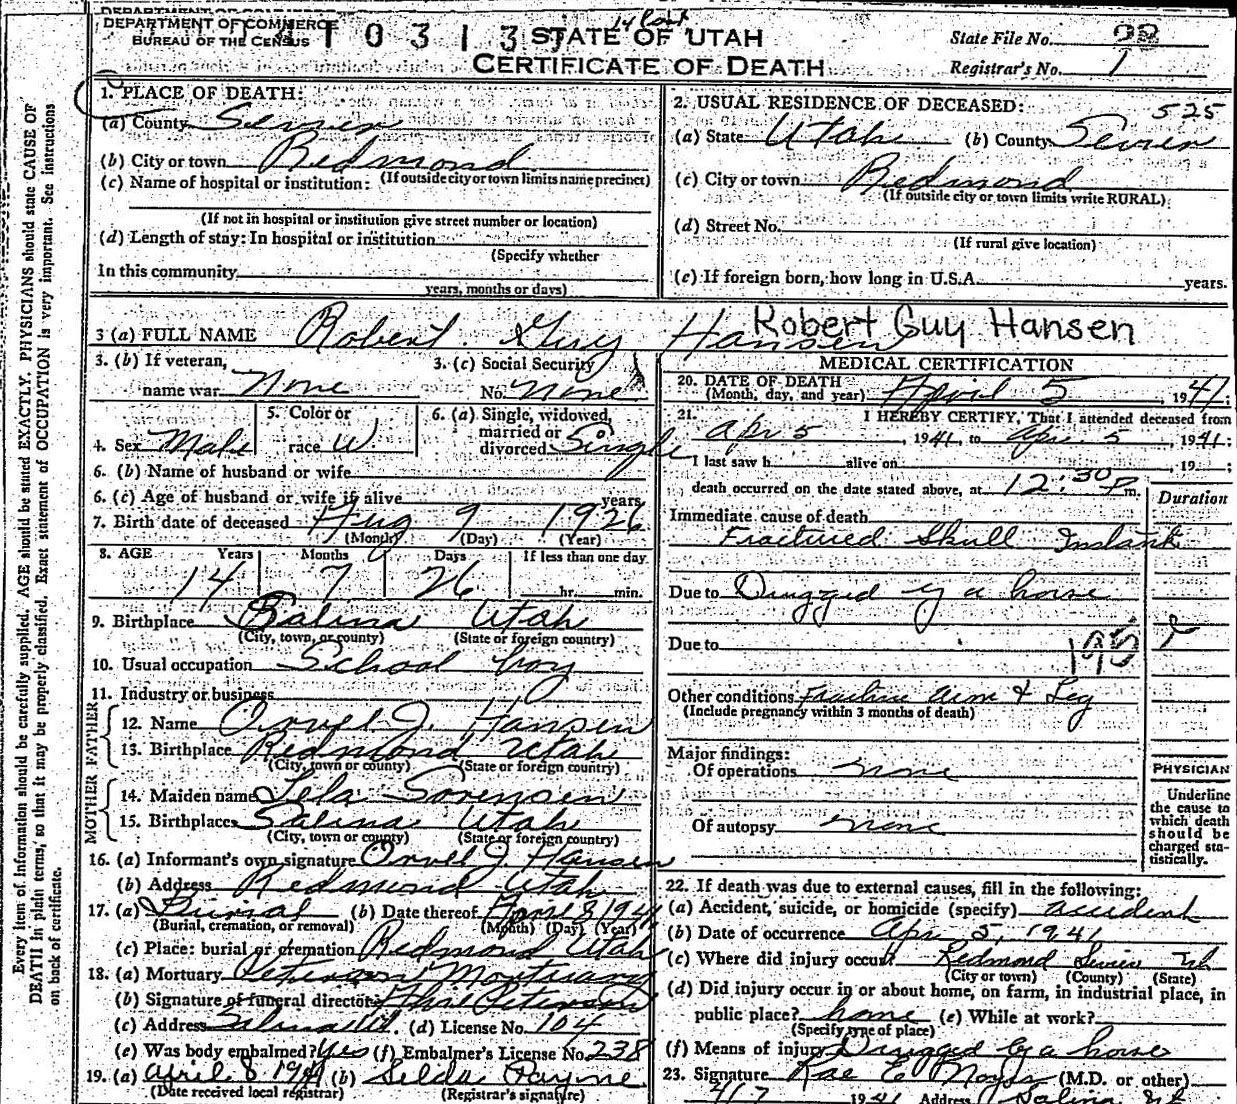 DEPARTMENT OF COMMERCE
BUREAU OF THE CENSUS
STATE OF UTAH
CERTIFICATE OF DEATH
State File No. 98
Registrar's No. 1
Every item of information should be carefully supplied. AGE should be stated EXACTLY. PHYSICIANS should state CAUSE OF
DEATH in plain terms, so that it may be properly classified. Exact statement of OCCUPATION is very important. See instructions
on back of certificate.
1. PLACE OF DEATH:
(a) County Sevier
(b) City or town Redmond
(If outside city or town limits name precinct)
(c) Name of hospital or institution:
(If not in hospital or institution give street number or location)
(d) Length of stay: In hospital or institution
(Specify whether
In this community
years, months or days)
2. USUAL RESIDENCE OF DECEASED: 525
(a) State Utah (b) County Sevier
(c) City or town Redmond
(If outside city or town limits write RURAL)
(d) Street No.
(If rural give location)
(e) If foreign born, how long in U.S.A. years.
3 (a) FULL NAME Robert Guy Hansen Robert Guy Hansen
3. (b) If veteran,
name war None
3. (c) Social Security
No. None
4. Sex Male
5. Color or
race W.
6. (a) Single, widowed,
married or
divorced Single
6. (b) Name of husband or wife
6. (c) Age of husband or wife if alive years
7. Birth date of deceased Aug 9 1926
(Month) (Day) (Year)
8. AGE Years Months Days If less than one day
14 7 26 hr. min.
9. Birthplace Salina Utah
(City, town, or county) (State or foreign country)
10. Usual occupation School boy
11. Industry or business
FATHER
12. Name Orvel J. Hansen
13. Birthplace Redmond Utah
(City, town or county) (State or foreign country)
MOTHER
14. Maiden name Lela Sorensen
15. Birthplace Salina Utah
(City, town or county) (State or foreign country)
16. (a) Informant's own signature Orvel J. Hansen
(b) Address Redmond Utah
17. (a) Burial (b) Date thereof April 8 1941
(Burial, cremation, or removal) (Month) (Day) (Year)
(c) Place: burial or cremation Redmond Utah
18. (a) Mortuary Mortuary
(b) Signature of funeral director Petersen
(c) Address Salina Ut. (d) License No. 104
(e) Was body embalmed? Yes (f) Embalmer's License No. 238
19. (a) April 8 1941 (b) Selda Payne
(Date received local registrar) (Registrar's signature)
MEDICAL CERTIFICATION
20. DATE OF DEATH
(Month, day, and year) April 5, 1941
21. I HEREBY CERTIFY, That I attended deceased from
Apr 5, 1941, to Apr. 5, 1941;
I last saw h alive on , 19 ;
death occurred on the date stated above, at 12:30 P m.
Duration
Immediate cause of death
Fractured Skull Instant
Due to Drugged by a horse
Due to
195
Other conditions Fracture arm & Leg
(Include pregnancy within 3 months of death)
Major findings:
Of operations none
Of autopsy none
PHYSICIAN
Underline
the cause to
which death
should be
charged sta-
tistically.
22. If death was due to external causes, fill in the following:
(a) Accident, suicide, or homicide (specify) accident
(b) Date of occurrence Apr 5, 1941
(c) Where did injury occur? Redmond Sevier Ut
(City or town) (County) (State)
(d) Did injury occur in or about home, on farm, in industrial place, in
public place? home (e) While at work?
(Specify type of place)
(f) Means of injury Drugged by a horse
23. Signature Rae E. Noyes (M.D. or other)
4/7 1941 Address Salina Ut